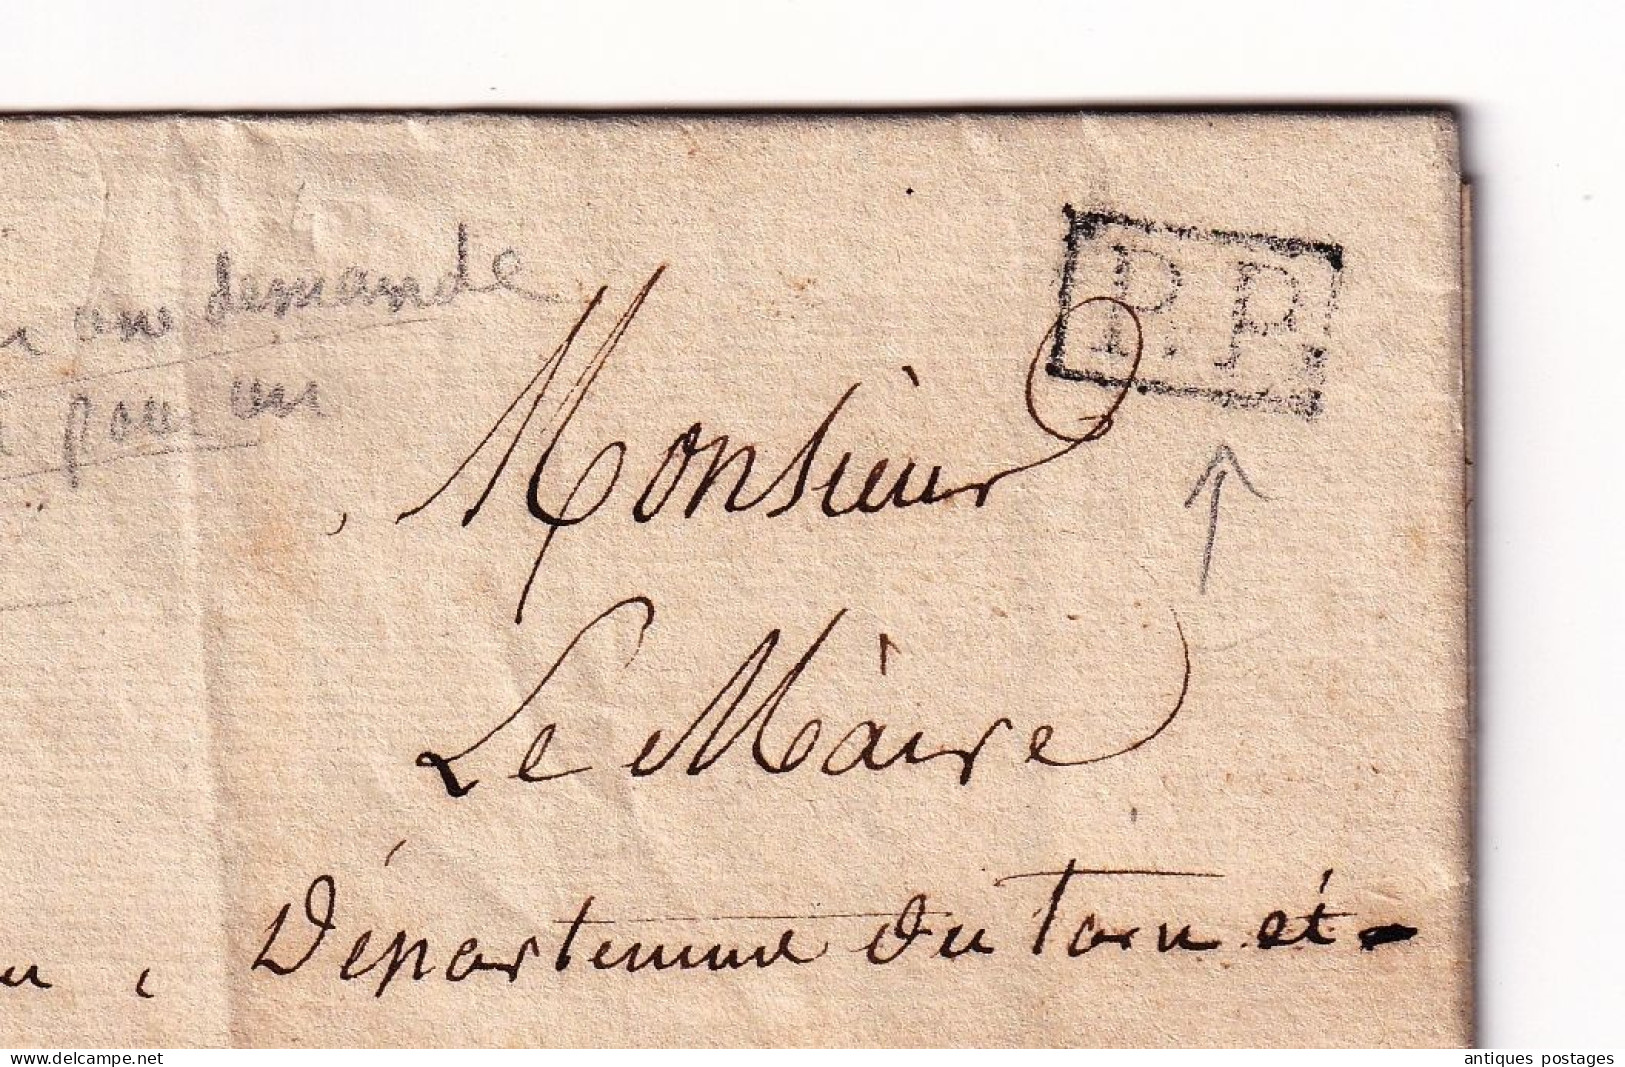 P.P.
demande
pour un
Monsieur
Le Maire
Département du Tarn et
www.delcampe.net
antiques postages